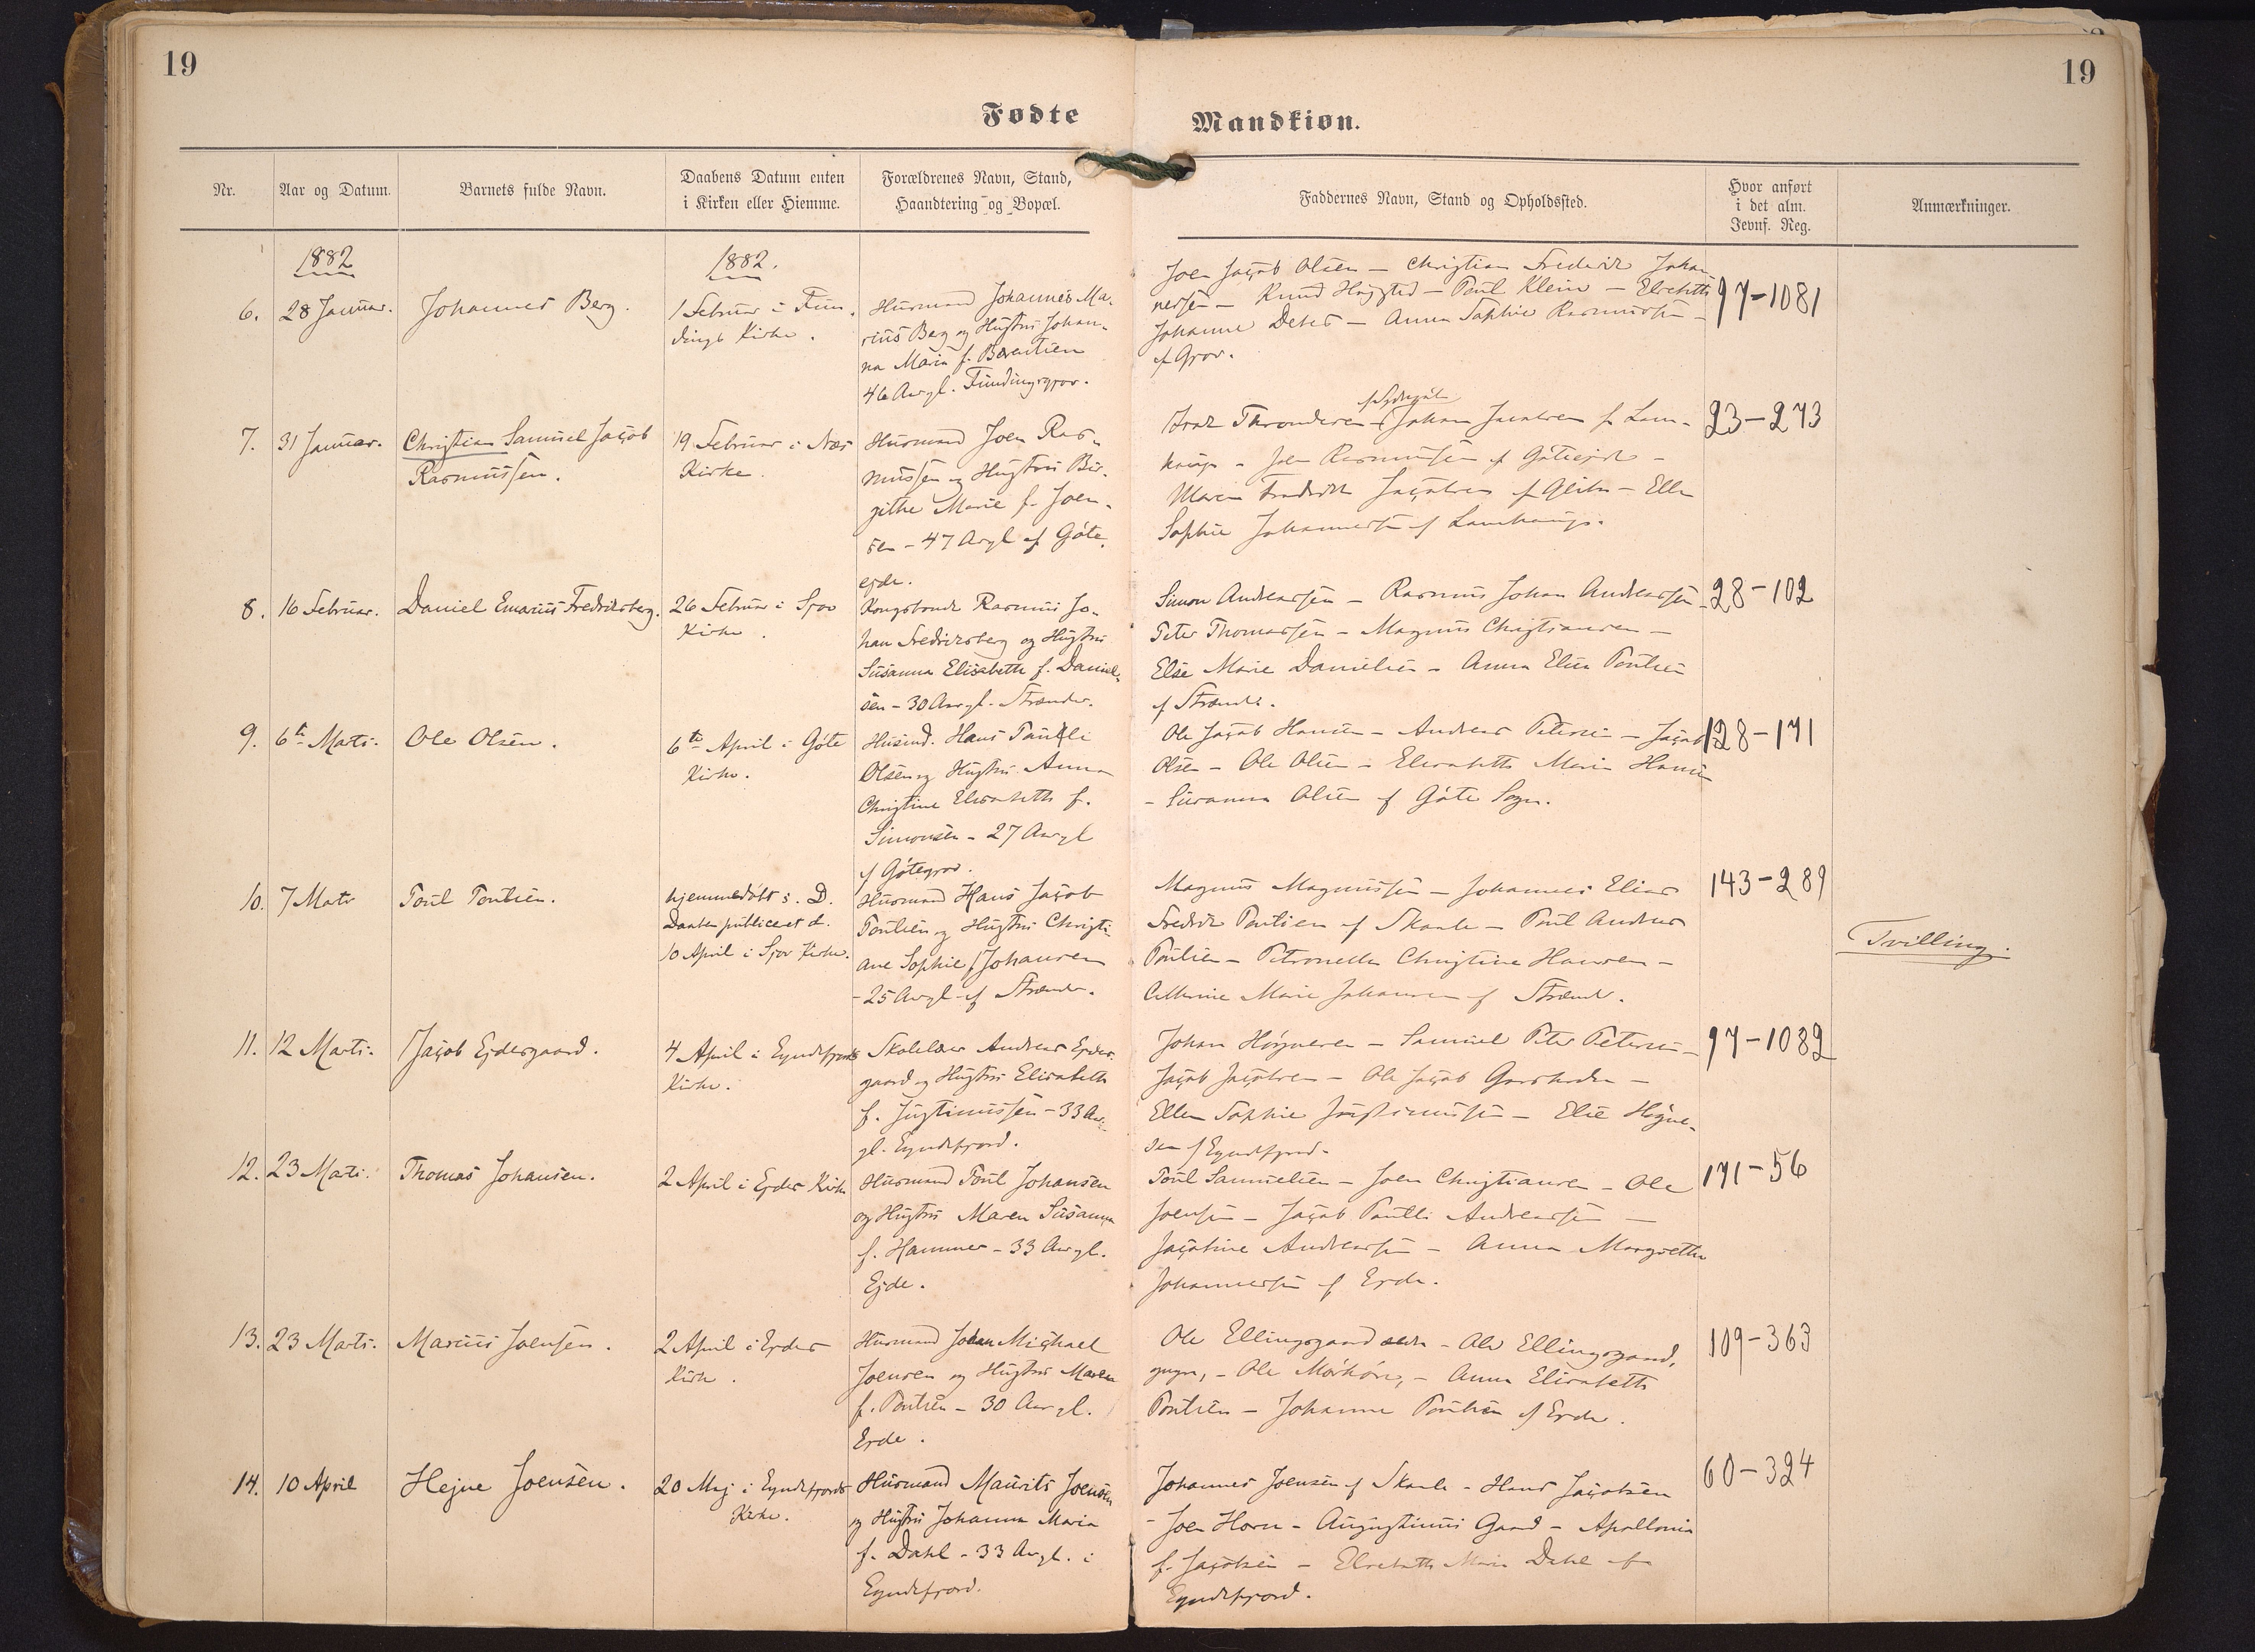 19
19
Fødte
Mandkiøn.
Nr.
Aar og Datum.
Barnets fulde Navn.
Daabens Datum enten
i Kirken eller Hiemme.
Forældrenes Navn, Stand,
Haandtering og Bopæl.
Faddernes Navn, Stand og Opholdssted.
Hvor anført
i det alm.
Jevnf. Reg.
Anmærkninger.
1882
1882.
6.
28 Januar.
Johannes Berg.
1 Februar i Fun-
dings Kirke.
Husmand Johannes Ma-
rius Berg og Hustru Johan-
na Maria f.
46 Aar gl. Fundingsgror.
Joen Jacob Olsen – Christian Frederik Johan-
nessen – Knud – Poul Klein – Elsebeth
Johanne Debes – Anna Sophie Rasmussen –
af Gror.
97–1081
7.
31 Januar.
Christian Samuel Jacob
Rasmussen.
19 Februar i Næs
Kirke.
Husmand Joen Ras-
mussen og Hustru Bir-
githe Marie f. Joen-
sen – 47 Aargl af Gøte-
ejde.
Throndesen – Johan Jacobsen f Lam-
– Joen Rasmussen af Gøteejde –
Maren Jacobsen af – Ellen
Sophie Johannessen af
23–273
8.
16 Februar.
Daniel Emarius Fredriksberg.
26 Februar i Sjov
Kirke.
Kongsbonde Rasmus Jo-
han Fredriksberg og Hustru
Susanna Elisabeth f. Daniel-
sen – 30 Aar gl. Strænder.
Simon Andreassen – Rasmus Johan Andreassen –
Peter Thomassen – Magnus Christiansen –
Else Marie Danielsen – Anna Elisa Poulsen
af Strænde.
28–102
9.
6te Marts.
Ole Olsen.
6te April i Gøte
Kirke.
Husmd. Hans Paulli
Olsen og Hustru Anna
Christine Elisabeth f.
Simonsen – 27 Aar gl
af Gøtegror.
Ole Jacob Hansen – Andreas Petersen – Jacob
Olsen – Ole Olsen – Elisabeth Maria Hansen
– Susanna Olsen af Gøte Sogn.
128–171
10.
7 Marts
Poul Poulsen.
hjemmedøbt s. D.
Daaben publiceret d.
10 April i Sjov Kirke.
Husmand Hans Jacob
Poulsen og Hustru Christi-
ane Sophie f Johansen
– 25 Aar gl af Strænder.
Magnus Magnussen – Johannes Elias
Fredrik Poulsen af Skaale – Poul Andreas
Poulsen – Petronella Christine Hansen –
Cathrine Marie Johansen af Strænde.
143–289
Tvilling.
11.
12 Marts.
Jacob Ejdesgaard.
4 April i Eyndefjords
Kirke.
Skolelærer Andreas Ejdes-
gaard og Hustru Elisabeth
f. Justinussen – 33 Aar
gl. Eyndefjord.
Johan Høgnesen – Samuel Peter Petersen –
Jacob Jacobsen – Ole Jacob –
Ellen Sophie Justinussen – Else Høgne-
sen af Eyndefjord.
97–1082
12.
23 Marts.
Thomas Johansen.
2 April i Ejdes Kirke
Husmand Poul Johansen
og Hustru Maren Susanna
f. Hammer – 33 Aar gl.
Ejde.
Poul Samuelsen – Joen Christiansen – Ole
Joensen – Jacob Paulli Andreassen –
Jacobine Andreassen – Anna Margrethe
Johannessen af Ejde.
171–56
13.
23 Marts.
Marius Joensen.
2 April i Ejdes
Kirke.
Husmand Johan Michael
Joensen og Hustru Maren
f. Poulsen – 30 Aar gl.
Ejde.
Ole Ellingsgaard – Ole Ellingsgaard,
yngre, – Ole Mørkøre, – Anna Elisabeth
Poulsen – Johanne Poulsen af Ejde.
109–363
14.
10 April
Hejne Joensen.
20 Maj i Eyndefjords
Kirke.
Husmand Maurits Joensen
og Hustru Johanna Maria
f. Dahl – 33 Aar gl. i
Eyndefjord.
Johannes Joensen af Skaale – Hans Jacobsen
– Joen Horn – Augustinus Gaard – Apollonia
f. Jacobsen – Elsebeth Maria Dahl af
Eyndefjord.
60–324